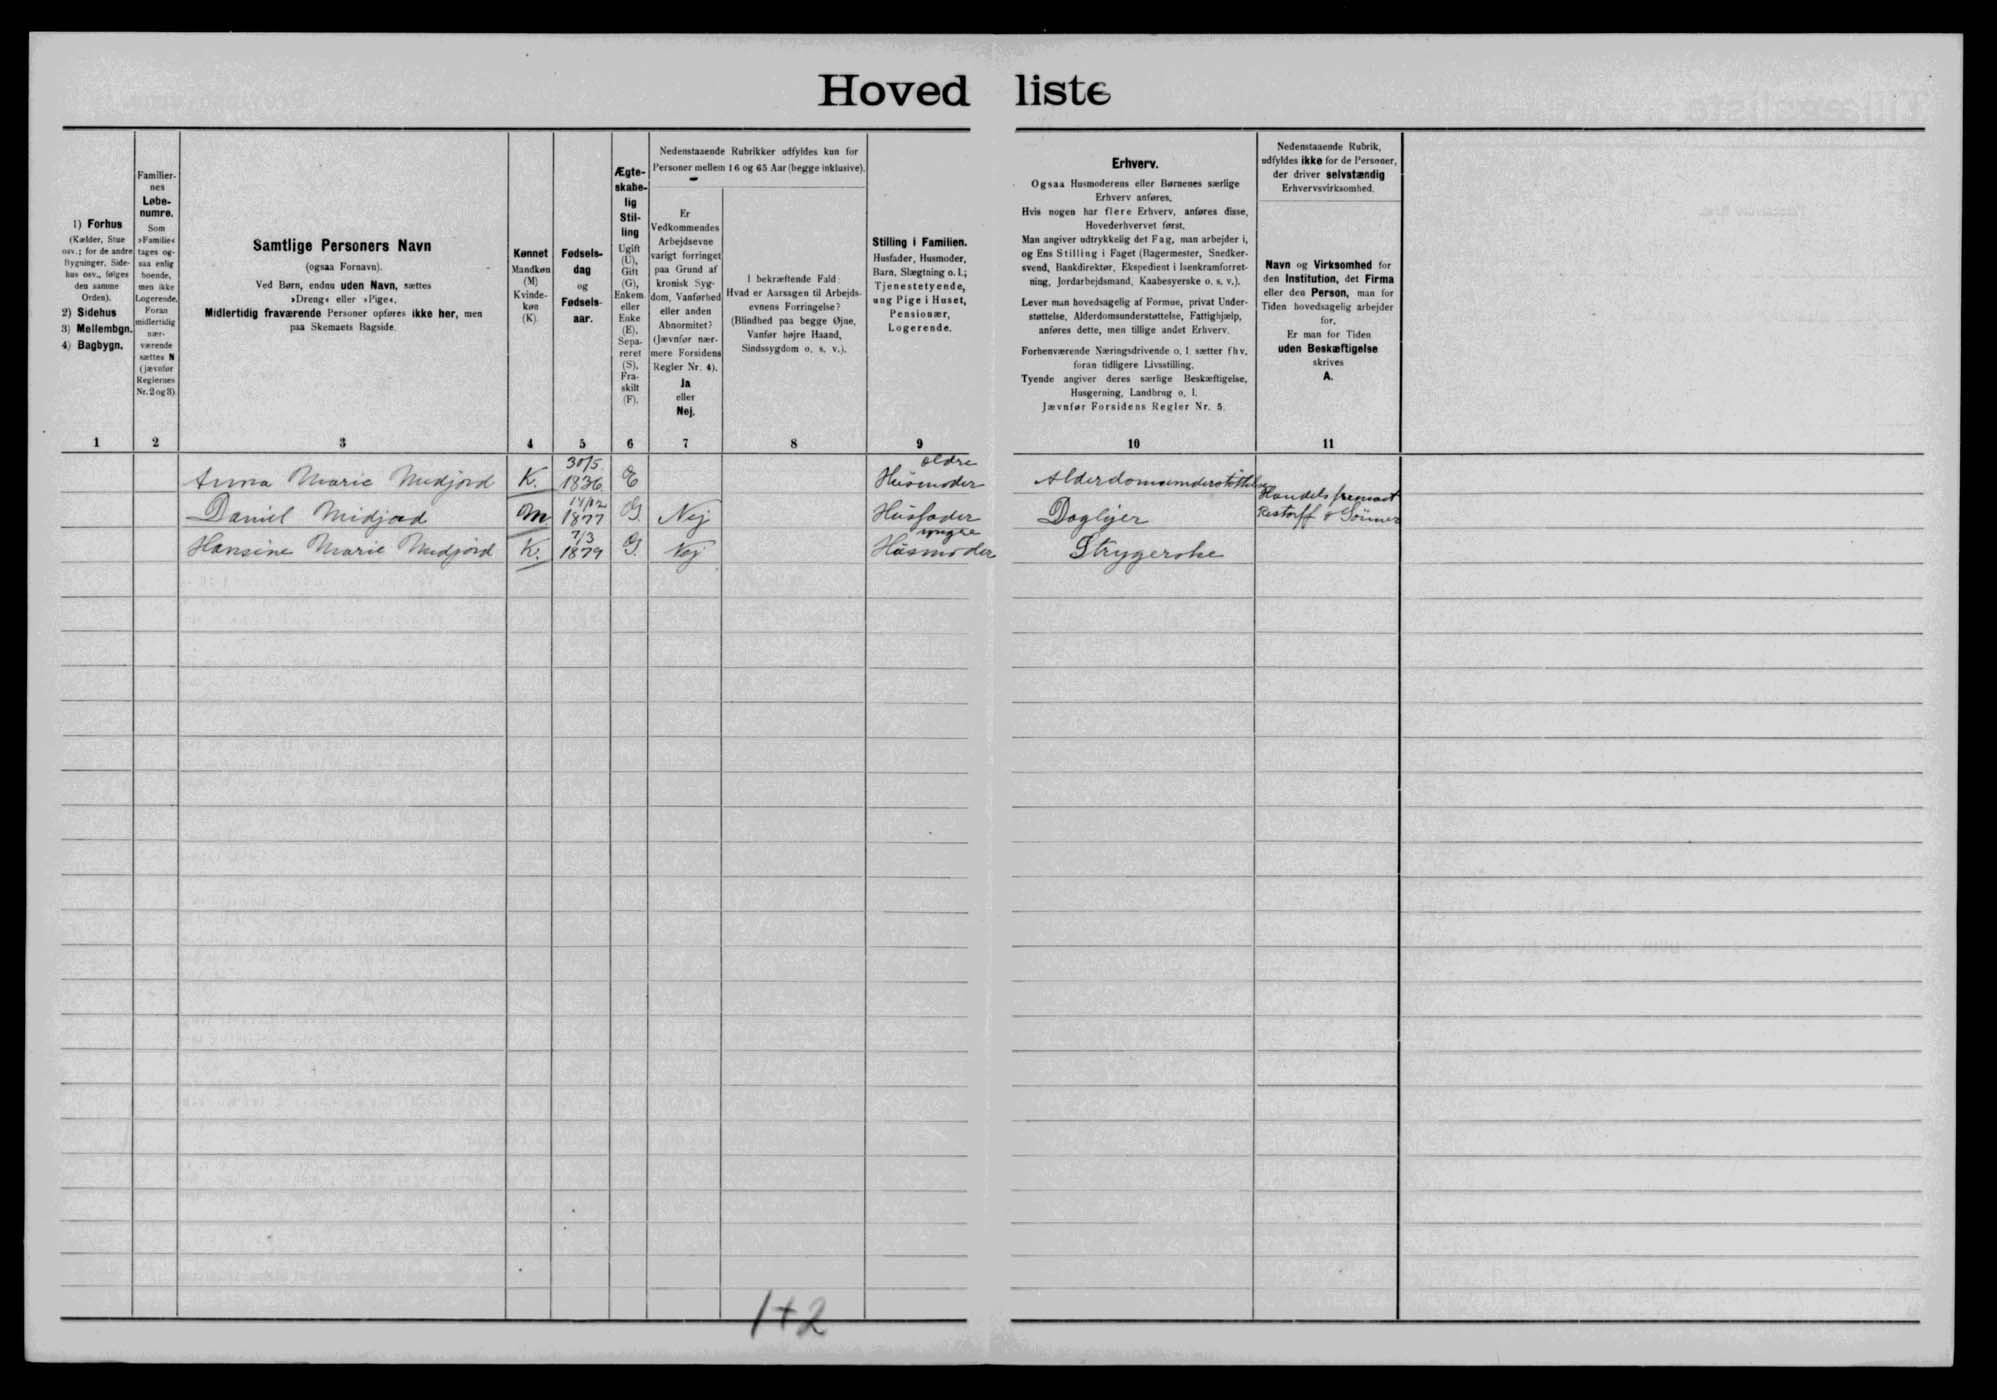 Hovedliste
1) Forhus
(Kælder, Stue
osv.; for de andre
Bygninger, Side-
hus osv., følges
den samme
Orden).
2) Sidehus
3) Mellembgn.
4) Bagbygn.
Familier-
nes
Løbe-
numre.
Som
»Familie«
tages og-
saa enlig
boende,
men ikke
Logerende.
Foran
midlertidig
nær-
værende
sættes N
(jævnfør
Reglernes
Nr. 2 og 3)
Samtlige Personers Navn
(ogsaa Fornavn).
Ved Børn, endnu uden Navn, sættes
»Dreng« eller »Pige«.
Midlertidig fraværende Personer opføres ikke her, men
paa Skemaets Bagside.
Kønnet
Mandkøn
(M)
Kvinde-
køn
(K).
Fødsels-
dag
og
Fødsels-
aar.
Ægte-
skabe-
lig
Stil-
ling
Ugift
(U),
Gift
(G),
Enkem.
eller
Enke
(E),
Sepa-
reret
(S),
Fra-
skilt
(F).
Nedenstaaende Rubrikker udfyldes kun for
Personer mellem 16 og 65 Aar (begge inklusive).
Er
Vedkommendes
Arbejdsevne
varigt forringet
paa Grund af
kronisk Syg-
dom, Vanførhed
eller anden
Abnormitet?
(Jævnfør nær-
mere Forsidens
Regler Nr. 4).
Ja
eller
Nej.
I bekræftende Fald:
Hvad er Aarsagen til Arbejds-
evnens Forringelse?
(Blindhed paa begge Øjne,
Vanfør højre Haand,
Sindssygdom o. s. v.).
Stilling i Familien.
Husfader, Husmoder,
Barn, Slægtning o. l.;
Tjenestetyende,
ung Pige i Huset,
Pensionær,
Logerende.
Erhverv.
Ogsaa Husmoderens eller Børnenes særlige
Erhverv anføres.
Hvis nogen har flere Erhverv, anføres disse,
Hovederhvervet først.
Man angiver udtrykkelig det Fag, man arbejder i,
og Ens Stilling i Faget (Bagermester, Snedker-
svend, Bankdirektør, Ekspedient i Isenkramforret-
ning, Jordarbejdsmand, Kaabesyerske o. s. v.).
Lever man hovedsagelig af Formue, privat Under-
støttelse, Alderdomsunderstøttelse, Fattighjælp,
anføres dette, men tillige andet Erhverv.
Forhenværende Næringsdrivende o. l. sætter fhv.
foran tidligere Livsstilling.
Tyende angiver deres særlige Beskæftigelse,
Husgerning, Landbrug o. l.
Jævnfør Forsidens Regler Nr. 5.
Nedenstaaende Rubrik,
udfyldes ikke for de Personer,
der driver selvstændig
Erhvervsvirksomhed.
Navn og Virksomhed for
den Institution, det Firma
eller den Person, man for
Tiden hovedsagelig arbejder
for.
Er man for Tiden
uden Beskæftigelse
skrives
A.
1 2 3 4 5 6 7 8 9 10 11
Anna Marie Midjord K. 30/5 1836 E ældre Husmoder Alderdomsunderstøttelse
Daniel Midjord M 14/12 1877 G. Nej Husfader Daglejer Handels Restorff & Sönner
Hansine Marie Midjord K. 7/3 1879 G. Nej yngre Husmoder Strygerske
1+2